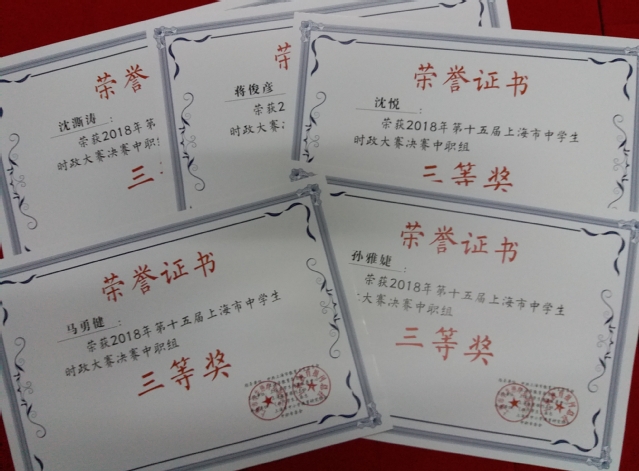 荣誉
沈澌涛：
荣获2018年第
时政大赛决赛中职
三
荣
蒋俊彦
荣获2
时政大赛
荣誉证书
沈悦：
荣获2018年第十五届上海市中学生
时政大赛决赛中职组
三等奖
荣誉证书
马勇健：
荣获2018年第十五届上海市中学生
时政大赛决赛中职组
三等奖
荣誉证书
孙雅婕：
荣获2018年第十五届上海市中学生
大赛决赛中职组
三等奖